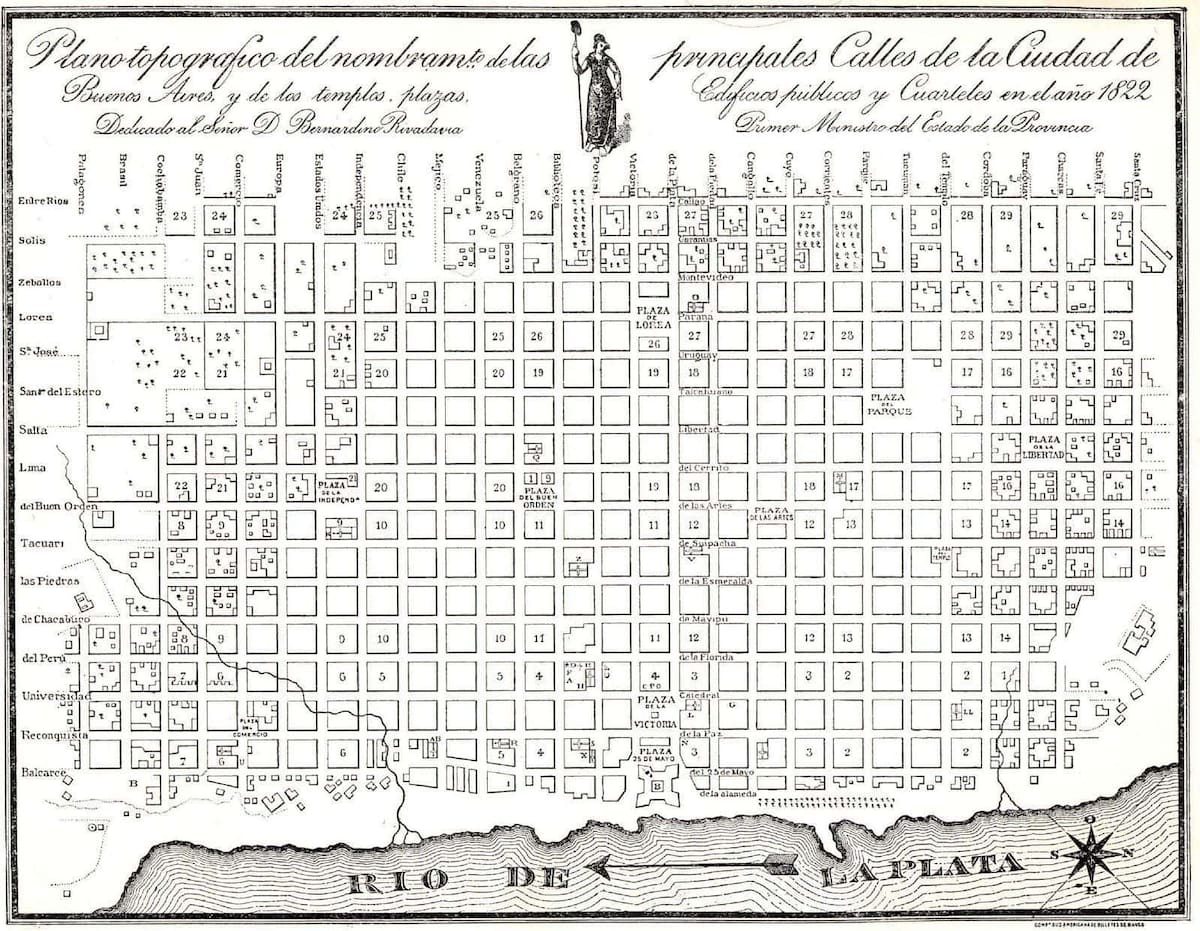 Plano topografico del nombramto. de las principales Calles de la Ciudad de
Buenos Aires, y de los templos, plazas, Edificios públicos y Cuarteles en el año 1822
Dedicado al Señor D Bernardino Rivadavia Primer Ministro del Estado de la Provincia
Patagones Brasil Cochabamba Sn. Juan Comercio Europa Estados Unidos Independencia Chile Mejico Venezuela Belgrano Biblioteca Potosí Victoria de la Plata de la Piedad Cangallo Cuyo Corrientes Parque Tucuman del Templo Cordoba Paraguay Charcas Santa Fé Santa Cruz
Entre Rios
Callao
23 24 24 25 25 26 26 27 27 28 28 29 29
Solis
Garantias
Zeballos
Montevideo
PLAZA
DE
LOREA
Lorea
Parana
23 24 24 25 25 26 26 27 27 28 28 29 29
Sn. José
Uruguay
22 21 21 20 20 19 19 18 18 17 17 16 16
Santo. del Estero
Talcahuano
PLAZA
DEL
PARQUE
Salta
Libertad
Q
PLAZA
DE LA
LIBERTAD
Lima
del Cerrito
22 21 21 20 20 1 9 19 18 18 17 17 16 16
PLAZA
DE LA
INDEPENDa
PLAZA
DEL BUEN
ORDEN
del Buen Orden
de las Artes
8 9 9 10 10 11 11 12 12 13 13 14 14
PLAZA
DE LAS ARTES
Tacuari
de Suipacha
Z V
PLAZA
DEL
TEMPLO
las Piedras
de la Esmeralda
de Chacabuco
de Maypu
8 9 9 10 10 11 11 12 12 13 13 14
del Perú
de la Florida
7 6 6 5 5 4 4 3 3 2 2 1
F A H
CPO
Universidad
Catedral
PLAZA
DEL
COMERCIO
PLAZA
DE LA
VICTORIA
L G LL
Reconquista
de la Paz
7 6 U 6 AB 5 R 4 X S 3 3 2 2
PLAZA
25 DE MAYO
Balcarce
del 25 de Mayo
B
de la alameda
RIO DE LA PLATA
O
S N
E
COMPa. SUD AMERICANA DE BILLETES DE BANCO